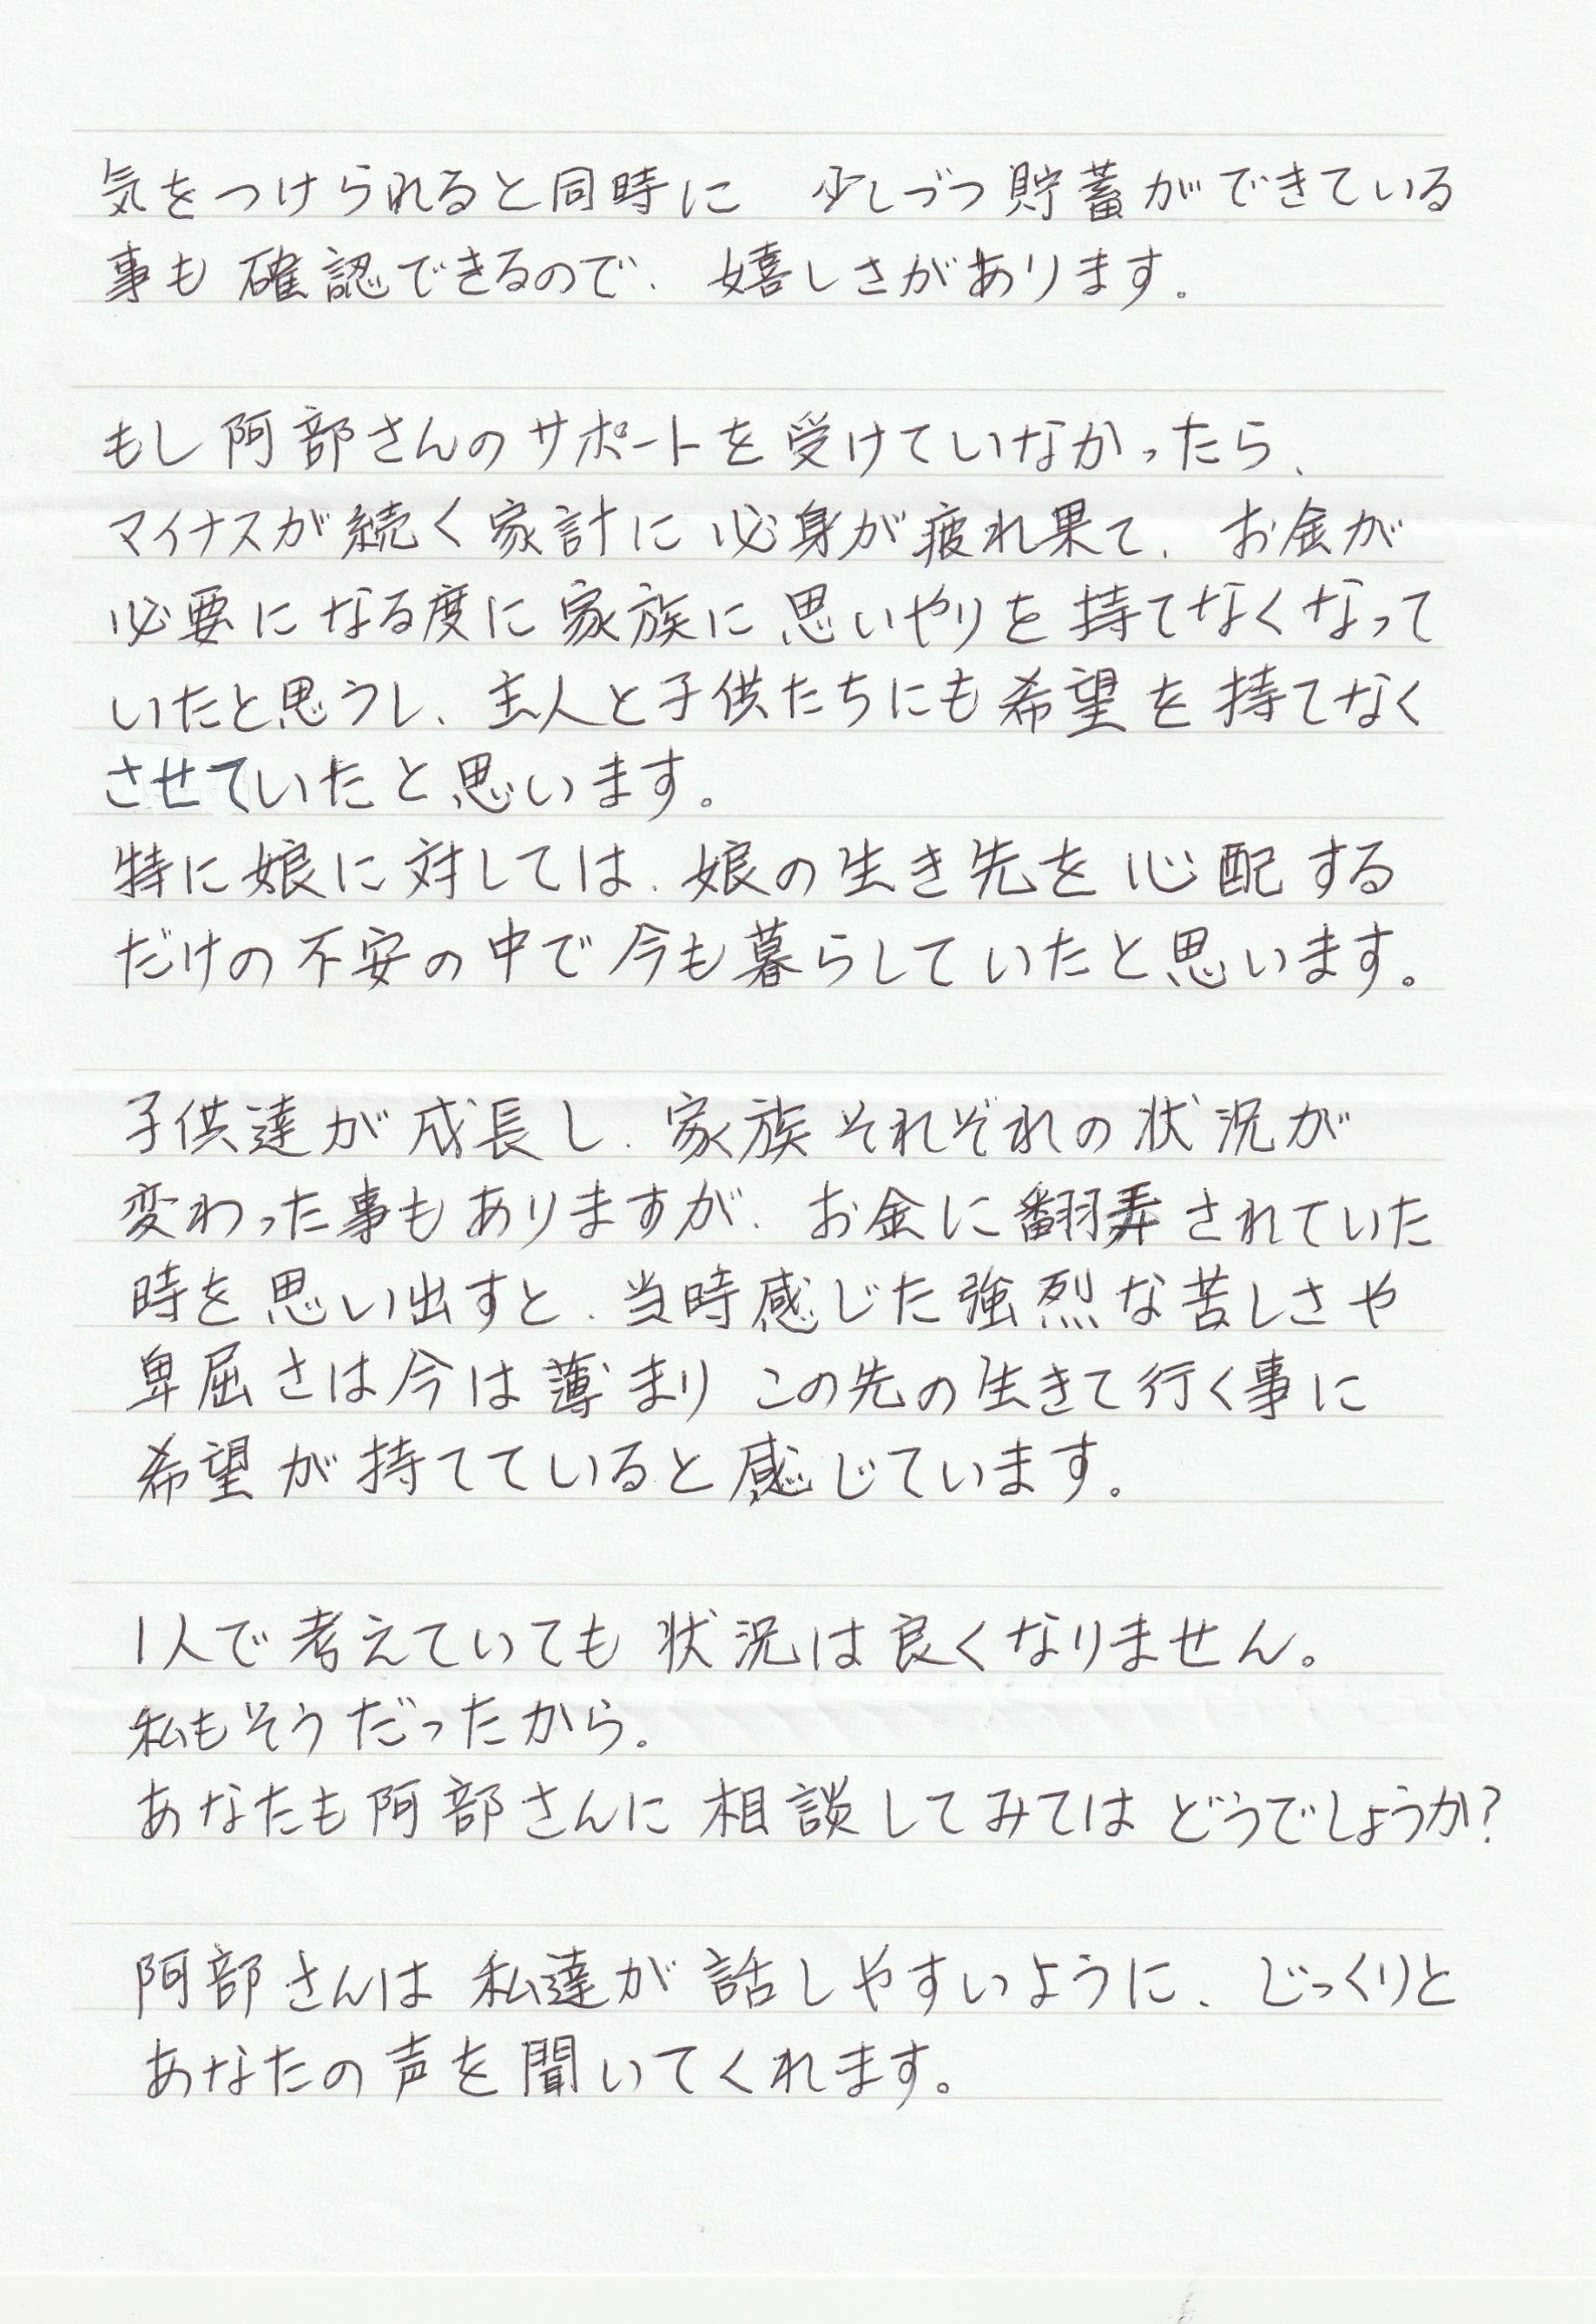 気をつけられると同時に 少しづつ貯蓄ができている
事も確認できるので、嬉しさがあります。
もし阿部さんのサポートを受けていなかったら、
マイナスが続く家計に心身が疲れ果て、お金が
必要になる度に家族に思いやりを持てなくなって
いたと思うし、主人と子供たちにも希望を持てなく
させていたと思います。
特に娘に対しては、娘の生き先を心配する
だけの不安の中で今も暮らしていたと思います。
子供達が成長し、家族それぞれの状況が
変わった事もありますが、お金に翻弄されていた
時を思い出すと、当時感じた強烈な苦しさや
卑屈さは今は薄まり この先の生きて行く事に
希望が持てていると感じています。
1人で考えていても状況は良くなりません。
私もそうだったから。
あなたも阿部さんに相談してみてはどうでしょうか?
阿部さんは私達が話しやすいように、じっくりと
あなたの声を聞いてくれます。